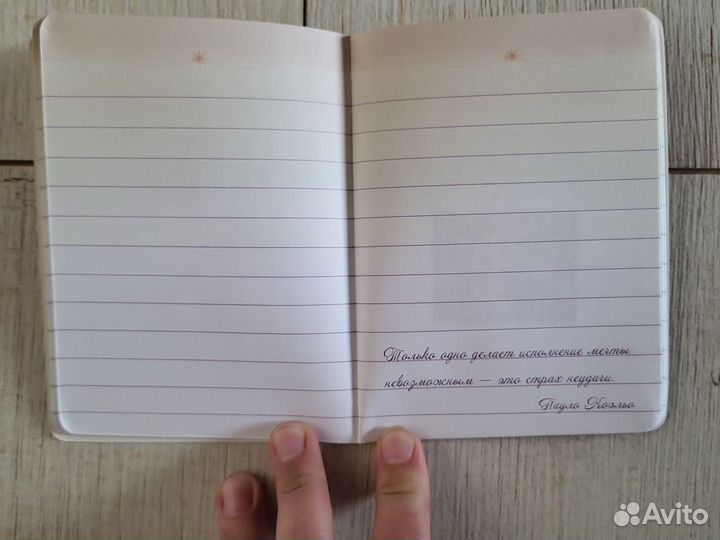 Только одно делает исполнение мечты
невозможным — это страх неудачи.
Пауло Коэльо
Avito